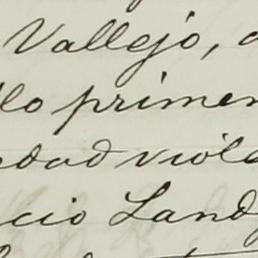 Vallejo, a
llo primer
edad viola
cio Land